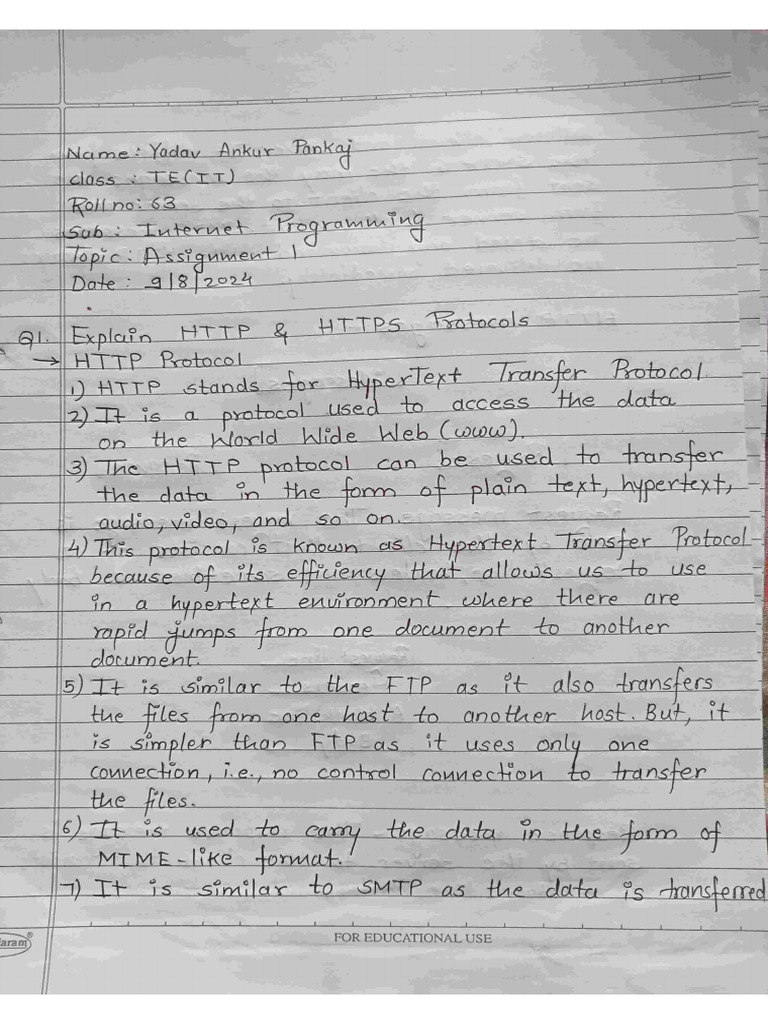 Name: Yadav Ankur Pankaj
Class : TE(IT)
Roll no: 63
Sub : Internet Programming
Topic: Assignment 1
Date : 9/8/2024
Q1. Explain HTTP & HTTPS Protocols
→ HTTP Protocol
1) HTTP stands for HyperText Transfer Protocol.
2) It is a protocol used to access the data
on the World Wide Web (www).
3) The HTTP protocol can be used to transfer
the data in the form of plain text, hypertext,
audio, video, and so on.
4) This protocol is known as Hypertext Transfer Protocol
because of its efficiency that allows us to use
in a hypertext environment where there are
rapid jumps from one document to another
document.
5) It is similar to the FTP as it also transfers
the files from one host to another host. But, it
is simpler than FTP as it uses only one
connection, i.e., no control connection to transfer
the files.
6) It is used to carry the data in the form of
MIME-like format.
7) It is similar to SMTP as the data is transferred
aram®
FOR EDUCATIONAL USE